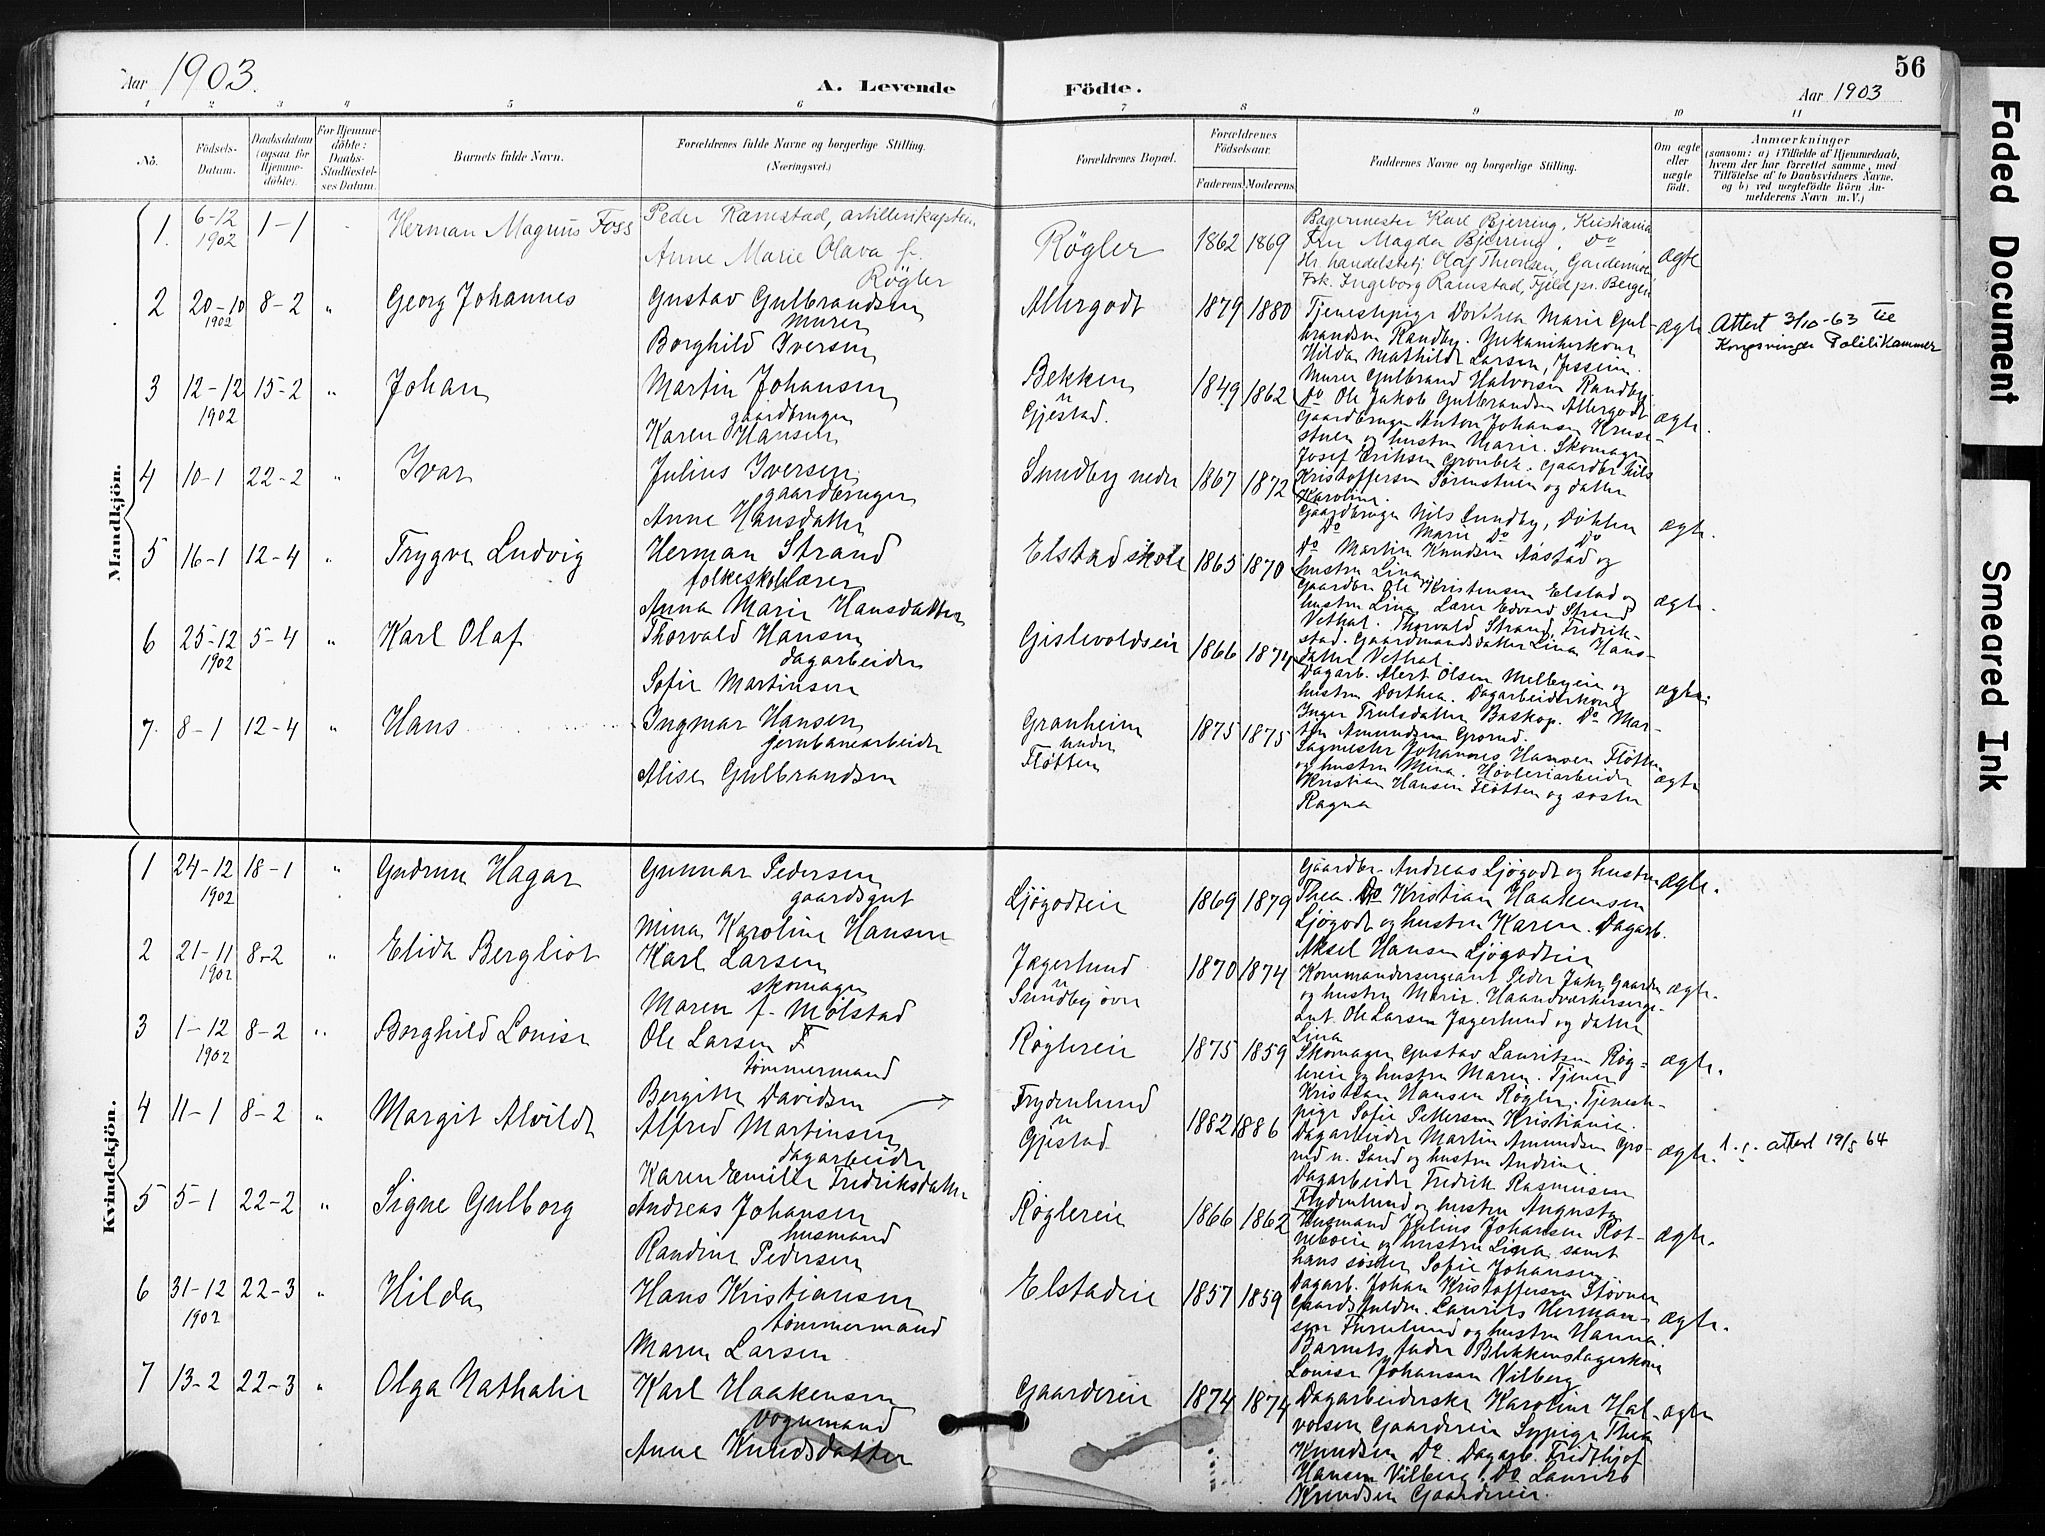 Aar 1903.
A. Levende Födte.
Aar 1903
56
1 2 3 4 5 6 7 8 9 10 11
No.
Födsels-
Datum.
Daabsdatum
(ogsaa for
Hjemme-
döbte).
For Hjemme-
döbte:
Daabs-
Stadfæstel-
ses Datum.
Barnets fulde Navn.
Forældrenes fulde Navne og borgerlige Stilling.
(Næringsvei.)
Forældrenes Bopæl.
Forældrenes
Födselsaar.
Faderens Moderens
Faddernes Navne og borgerlige Stilling.
Om ægte
eller
uægte
födt.
Anmærkninger
(saasom: a) i Tilfælde af Hjemmedaab,
hvem der har forrettet samme, med
Tilföielse af to Daabsvidners Navne,
og b) ved uægtefödte Börn An-
melderens Navn m. V.)
Mandkjön.
1. 6-12 1902 1-1 Herman Magnus Foss
Peder Ramstad, artillerikaptein
Anne Marie Olava f.
Røgler
Røgler 1862 1869
Bagermester Karl Bjerring, Kristiania
Fru Magda Bjerring, Do
Hr. handelsbestj. Olaf Thronsen, Gardermoen
Frk. Ingeborg Ramstad, Fjeld pr. Bergen
ægte
2 20-10 1902 8-2 " Georg Johannes
Gustav Gulbrandsen
murer
Borghild Iversen
Allergodt 1879 1880
Tjenestepige Dorthea Marie Gul-
brandsen Randby. Mekanikerkone
Hilda Mathilde Larsen, Jessheim.
Murer Gulbrand Halvorsen Randby.
Do Ole Jakob Gulbrandsen Allergodt
ægte
Attest 3/10-63 til
Kongsvinger Politikammer
3 12-12 1902 15-2 " Johan
Martin Johansen
gaardbruger
Karen Hansen
Bekken
n
Gjestad.
1849 1862
Gaardbruger Anton Johansen Kruse-
stuen og hustru Marie. Skomager
Josef Eriksen Grønbek. Gaardbr. Nils
Kristoffersen Sørenstuen og datter
Karoline.
ægte.
4 10-1 22-2 " Ivar
Julius Iversen
gaardbruger
Anne Hansdatter
Sundby nedre 1867 1872
Gaardbruger Nils Sundby, Døkken
Do Marie Do Do
Do Martin Knudsen Nåstad og
hustru Lina
ægte.
5 16-1 12-4 " Trygve Ludvig
Herman Strand
folkeskolelærer
Anna Marie Hansdatter
Elstad skole 1865 1870
Gaardbr. Ole Kristensen Elstad og
hustru Lina. Lærer Edvard Strand
Vethal. Thorvald Strand, Fredrik-
stad. Gaardmandsdatter Lina Hans-
datter Vethal
ægte.
6 25-12 1902 5-4 " Karl Olaf
Thorvald Hansen
dagarbeider
Sofie Martinsen
Gislevoldseie 1866 1874
Dagarb. Alert Olsen Melbyeie og
hustru Dorthea. Dagarbeiderkone
Inger Trulsdatter Baskop. Do Mar-
tin Amundsen Grorud.
ægte.
7. 8-1 12-4 " Hans
Ingmar Hansen
jernbanearbeider
Alise Gulbrandsen
Granheim
under
Fløtten
1875 1875
Sagmester Johannes Hansen Fløtten
og hustru Mina. Høvleriarbeider
Kristian Hansen Fløtten og søster
Ragna
ægte
Kvindekjön.
1 24-12 1902 18-1 " Gudrun Hagar
Gunnar Pedersen
gaardsgut
Mina Karoline Hansen
Ljøgodteie 1869 1879
Gaardbr. Andreas Ljøgodt og hustru
Thea. Do Kristian Haakensen
Ljøgodt og hustru Karen. Dagarb.
Aksel Hansen Ljøgodteie
ægte.
2 21-11 1902 8-2 " Elida Bergliot
Karl Larsen
skomager
Maren f. Mølstad
Jægerlund
n
Sundby øvre
1870 1874
Kommandersergeant Peder Juhr, Gaarder
og hustru Marie. Haandværkersersge-
ant Ole Larsen Jægerlund og datter
Lina
ægte.
3 1-12 1902 8-2 " Borghild Louise
Ole Larsen F
tømmermand
Bergitte Davidsen
Røglereie 1875 1859
Skomager Gustav Lauritsen Røg-
lereie og hustru Maren. Tjener
Kristian Hansen Røgler. Tjeneste-
pige Sofie Pettersen Kristiania.
ægte.
4 11-1 8-2 " Margit Alvilde
Alfred Martinsen
dagarbeider
Karen Emilie Fredriksdatter
Frydenlund
n
Gjestad
1882 1886
Dagarbeider Martin Amundsen Gro-
rud n. Sand og hustru Andrine.
Dagarbeider Fredrik Rasmussen
Frydenlund og hustru Augusta
ægte. 1. . attest 19/5 64
5 5-1 22-2 " Signe Gulborg
Andreas Johansen
husmand
Randine Pedersen
Røglereie 1866 1862
Husmand Julius Johansen Rot-
neboeie og hustru Lina samt
hans søster Sofie Johansen
Dagarb. Johan Kristoffersen Støvner
ægte.
6 31-12 1902 22-3 " Hilda
Hans Kristiansen
tømmermand
Maren Larsen
Elstadeie 1857 1859
Laurits Herman-
sen Furulund og hustru Hanna
Barnets fader Blikkenslagerkone
Louise Johansen Vilberg
ægte.
7 13-2 22-3 " Olga Nathalie
Karl Haakensen
vognmand
Anne Knudsdatter
Gaardereie 1874 1874
Dagarbeiderske Karoline Hal-
vorsen Gaardereie Sypige Thea
Knudsen Do. Dagarb. Fridthjof
Hansen Vilberg. Do Laurits
Knudsen Gaardereie.
ægte
Faded Document
Smeared Ink